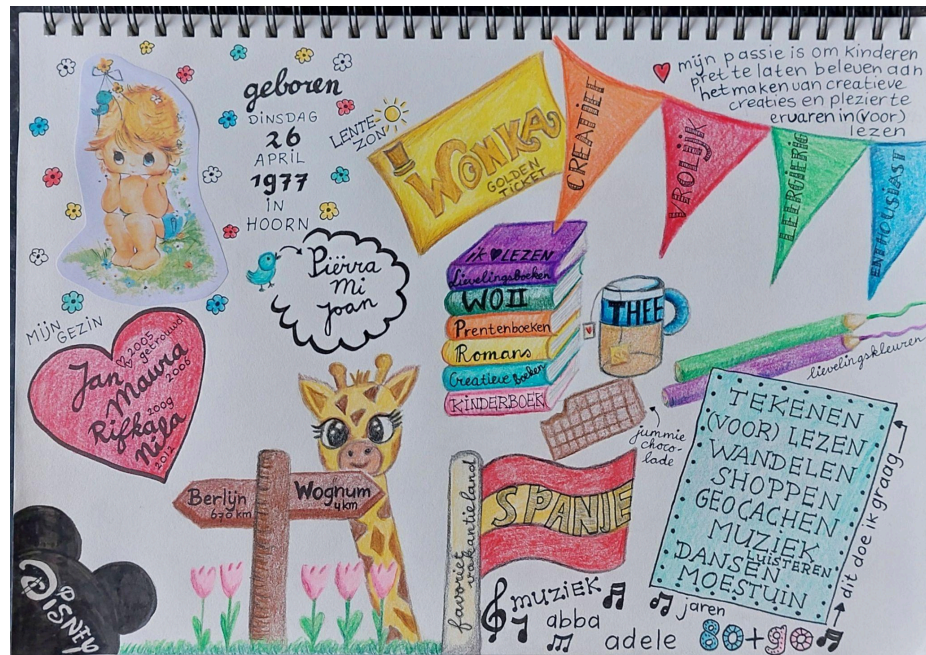 geboren
DINSDAG
26
APRIL
1977
IN
HOORN
LENTE-
ZON
WONKA
GOLDEN
TICKET
CREATIEF
VROLIJK
LEERGIERIG
ENTHOUSIAST
mijn passie is om kinderen
pret te laten beleven aan
het maken van creatieve
creaties en plezier te
ervaren in (voor)
lezen
Piërra
Mi
Joan
MIJN
GEZIN
Jan 2005
getrouwd
Maura
2006
Rifka 2009
Nila
2012
ik ♥ LEZEN
Lievelingsboeken
WO II
Prentenboeken
Romans
Creatieve boeken
KINDERBOEK
THEE
jummie
choco-
lade
lievelingskleuren
TEKENEN
(VOOR) LEZEN
WANDELEN
SHOPPEN
GEOCACHEN
MUZIEK
LUISTEREN
DANSEN
MOESTUIN
dit doe ik graag
Berlijn
670 km
Wognum
4 km
favoriet
vakantieland
SPANJE
DISNEY
muziek
abba
adele
jaren
80+90